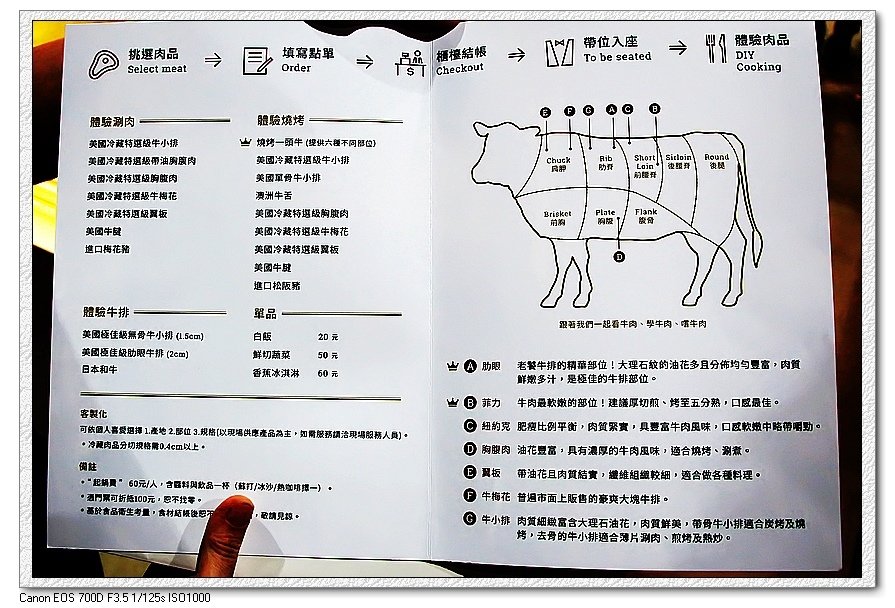 挑選肉品
Select meat
填寫點單
Order
櫃檯結帳
Checkout
帶位入座
To be seated
體驗肉品
DIY
Cooking
體驗涮肉
美國冷藏特選級牛小排
美國冷藏特選級帶油胸腹肉
美國冷藏特選級胸腹肉
美國冷藏特選級牛梅花
美國冷藏特選級翼板
美國牛腱
進口梅花豬
體驗燒烤
燒烤一頭牛 (提供六種不同部位)
美國冷藏特選級牛小排
美國單骨牛小排
澳洲牛舌
美國冷藏特選級胸腹肉
美國冷藏特選級牛梅花
美國冷藏特選級翼板
美國牛腱
進口松阪豬
體驗牛排
美國極佳級無骨牛小排 (1.5cm)
美國極佳級肋眼牛排 (2cm)
日本和牛
單品
白飯 20 元
鮮切蔬菜 50 元
香蕉冰淇淋 60 元
客製化
可依個人喜愛選擇 1.產地 2.部位 3.規格(以現場供應產品為主，如需服務請洽現場服務人員)。
*冷藏肉品分切規格需0.4cm以上。
備註
*"起鍋費" 60元/人，含醬料與飲品一杯 (蘇打/冰沙/熱咖啡擇一) 。
*酒門票可折抵100元，恕不找零。
*基於食品衛生考量，食材結帳後恕不 ，敬請見諒。
E F G A C B
Chuck
肩胛
Rib
肋脊
Short
Loin
前腰脊
Sirloin
後腰脊
Round
後腿
Brisket
前胸
Plate
胸腹
Flank
腹脅
D
跟著我們一起看牛肉、學牛肉、嚐牛肉
A 肋眼 老饕牛排的精華部位！大理石紋的油花多且分佈均勻豐富，肉質
鮮嫩多汁，是極佳的牛排部位。
B 菲力 牛肉最軟嫩的部位！建議厚切煎、烤至五分熟，口感最佳。
C 紐約克 肥瘦比例平衡，肉質緊實，具豐富牛肉風味，口感軟嫩中略帶嚼勁。
D 胸腹肉 油花豐富，具有濃厚的牛肉風味，適合燒烤、涮煮。
E 翼板 帶油花且肉質結實，纖維組織較細，適合做各種料理。
F 牛梅花 普遍市面上販售的豪爽大塊牛排。
G 牛小排 肉質細緻富含大理石油花，肉質鮮美，帶骨牛小排適合炭烤及燒
烤，去骨的牛小排適合薄片涮肉、煎烤及熱炒。
Canon EOS 700D F3.5 1/125s ISO1000